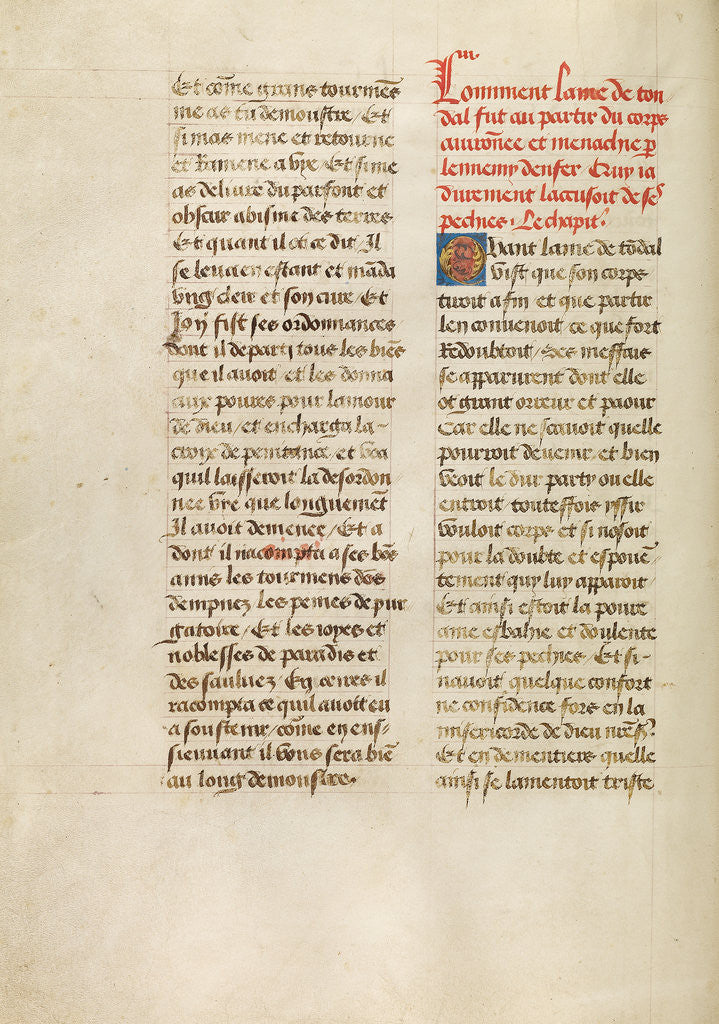 Et cõme grans tourmẽs
me as tu demoustre / Et
si mas mene et retourne
et Ramene a vye / Et si me
as deliure du parfont et
obscur abisme des terres
Et quant il ot ce dit / Il
se leua en estant et mãda
vng clerc et son cure / Et
Joÿ fist ses ordonnances
dont il departj tous les biẽs
que il auoit et les donna
aux poures pour lamour
de dieu / et encharga la -
croix de penitance / et voa
quil laisseroit la desordon
nee vye que longuemẽt
Il auoit demenee / Et a
dont il racompta a ses bõs
amis les tourmens des
dempnez les peines de pur
gatoire / Et les ioyes et
noblesses de paradis et
des sauluez Et coires il
racompta ce quil auoit eu
a soustenir / cõme en ens=
sieuuant il vous sera biẽ
au long demoustre.
iii.
Comment lame de ton
dal fut au partir du corps
auirõnee et menachie p̱
lennemy denfer / Quy ia
durement laccusoit de se᷒
pechies. Le chapit᷒.
Quant lame de tõdal
vist que son corps
tiroit a fin et que partir
len conuenoit ce que fort
Redoubtoit / Ses meffais
se apparurent dont elle
ot grant orreur et paour
Car elle ne scauoit quelle
pourroit deuenir, et bien
veoit le dur party ou elle
entroit / touteffois yssir
vouloit corps et si nosoit
pour la doubte et espouẽ
tement quy luy apparoit
Et ainsi estoit la poure
ame esbahie et doulente
pour ses pechies / Et si -
nauoit quelque confort
ne confidence fors en la
misericorde de dieu nr̃e s᷒.
Et en dementiers quelle
ainsi se lamentoit triste